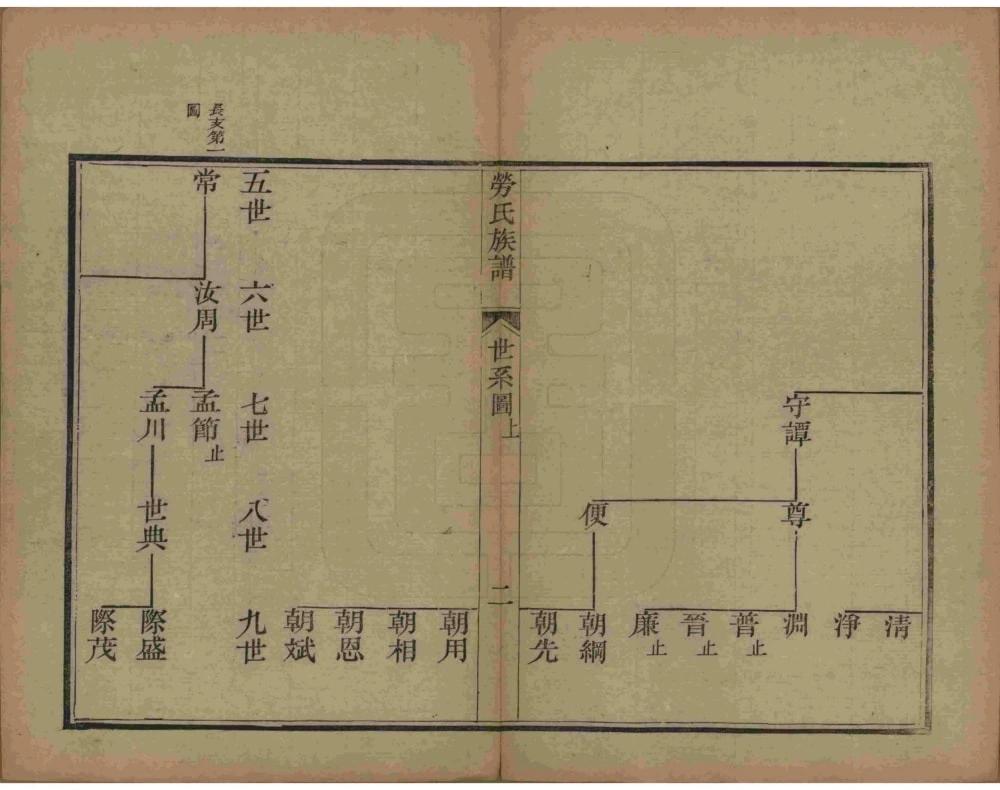 清
淨
守譚
尊
淵
普止
晉止
廉止
便
朝綱
朝先
勞氏族譜
世系圖上
二
朝用
朝相
朝恩
朝斌
五世
六世
七世
八世
九世
長支第一圖
常
汝周
孟節止
孟川
世典
際盛
際茂